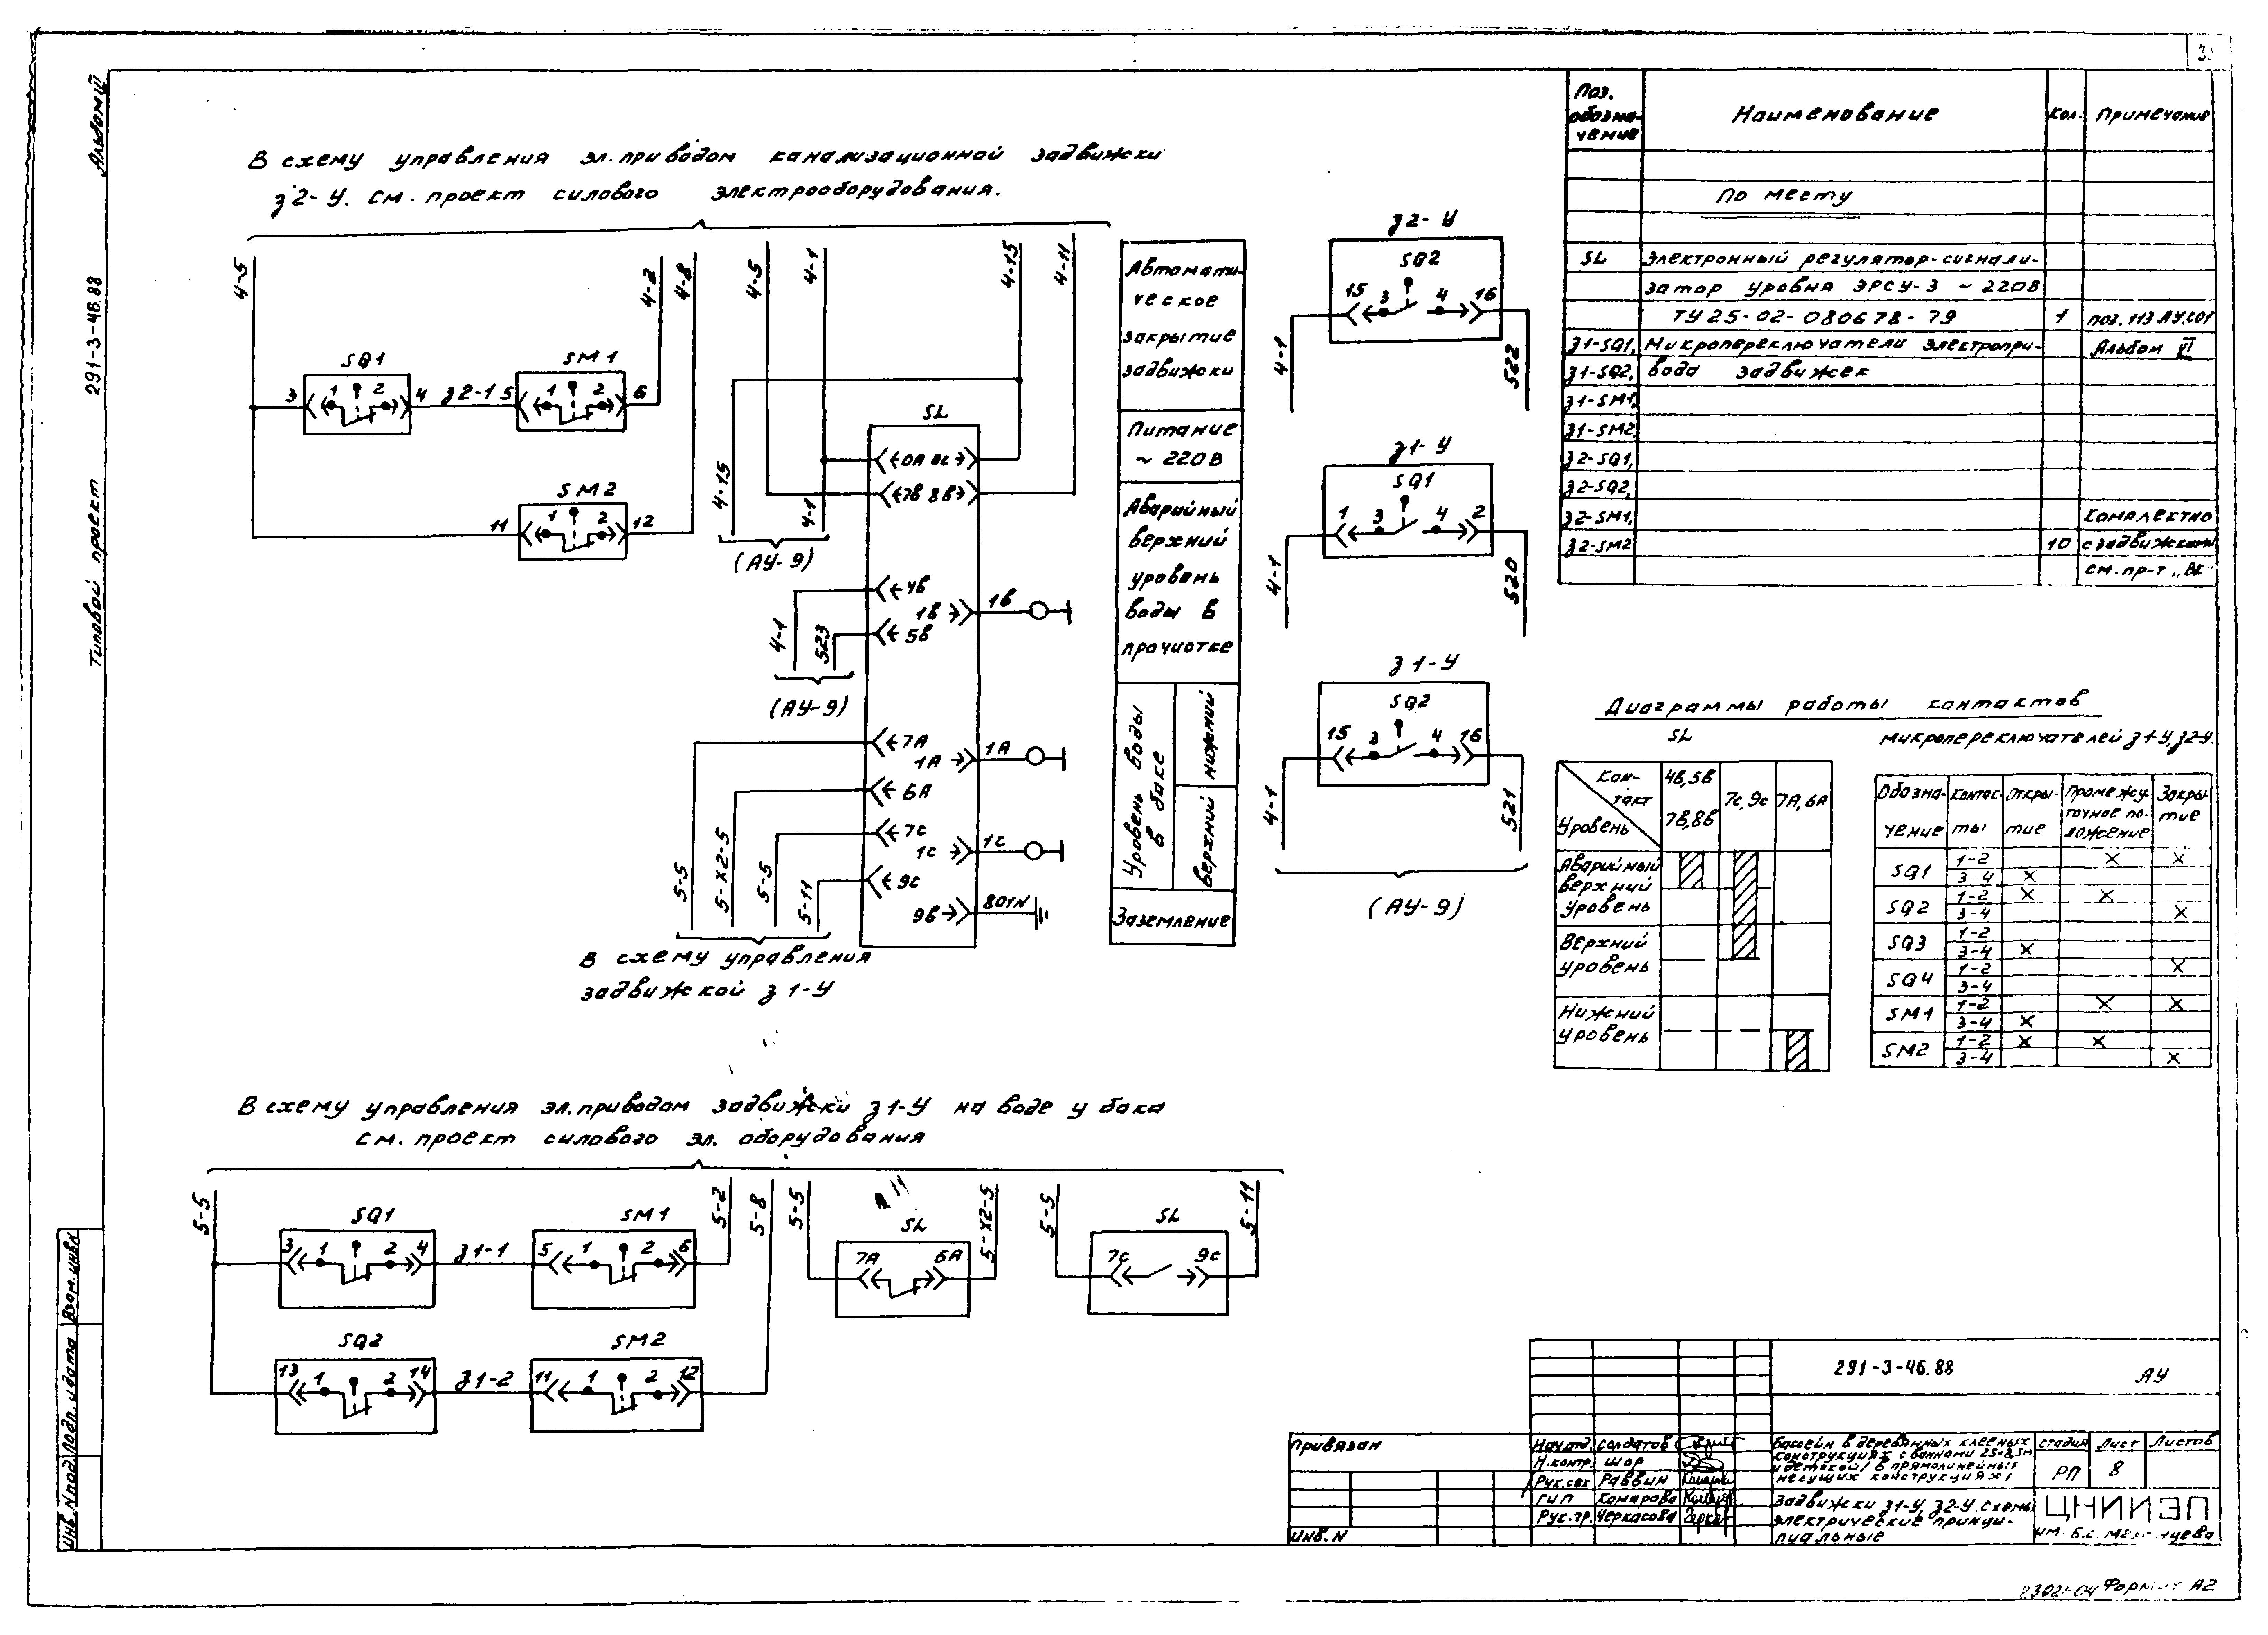 Альбом II
Типовой проект 291-3-46.88
В схему управления эл.приводом канализационной задвижки
з2-У. см. проект силового электрооборудования.
4-5
4-2
4-8
4-5
4-1
4-15
4-11
SQ1
3 1 2 4
з2-1
SM1
5 1 2 6
SM2
11 1 2 12
4-15
4-1
(АУ-9)
SL
0А 0С
7В 8В
4В
1В
1В
5В
4-1
523
(АУ-9)
7А
1А
1А
6А
7С
1С
1С
9С
9В
801N
5-5
5-Х2-5
5-5
5-11
В схему управления
задвижкой з1-У
Автомати-
ческое
закрытие
задвижки
Питание
~ 220В
Аварийный
верхний
уровень
воды в
прочистке
Уровень воды
в баке
нижний
верхний
Заземление
з2-У
SQ2
15 3 4 16
4-1
522
з1-У
SQ1
1 3 4 2
4-1
520
з1-У
SQ2
15 3 4 16
4-1
521
(АУ-9)
Поз.
обозна-
чение
Наименование
Кол.
Примечание
По месту
SL
Электронный регулятор-сигнали-
затор уровня ЭРСУ-3 ~ 220В
ТУ25-02-080678-79
1
поз. 113 АУ.СО1
з1-SQ1, Микропереключатели электропри-
Альбом VI
з1-SQ2, вода задвижек
з1-SM1,
з1-SM2,
з2-SQ1,
з2-SQ2,
з2-SM1,
комплектно
з2-SM2
10
с задвижками
см.пр-т
Диаграммы работы контактов
SL
микропереключателей з1-У, з2-У.
Кон-
такт
Уровень
4В,5В
7В,8В
7С,9С
7А,6А
Аварийный
верхний
уровень
Верхний
уровень
Нижний
уровень
Обозна-
чение
Контак-
ты
Откры-
тие
Промежу-
точное по-
ложение
Закры-
тие
SQ1
1-2 × ×
3-4 ×
SQ2
1-2 × ×
3-4 ×
SQ3
1-2
3-4 ×
SQ4
1-2 ×
3-4
SM1
1-2 × ×
3-4 ×
SM2
1-2 × ×
3-4 ×
В схему управления эл.приводом задвижки з1-У на воде у бака
см. проект силового эл. оборудования
5-5
5-2
5-8
5-5
5-Х2-5
5-5
5-11
SQ1
3 1 2 4
з1-1
SM1
5 1 2 6
SL
7А 6А
SL
7С 9С
SQ2
13 1 2 14
з1-2
SM2
11 1 2 12
Взам.инв.N
Подп. и дата
Инв.N подл.
Привязан
Инв. N
Нач.отд. Солдатов
Н.контр. Шор
Рук.сек Раввин
ГИП Комарова
Рук.гр. Черкасова
291-3-46.88
АУ
Бассейн в деревянных клееных
конструкциях с ваннами 25×8,5м
и детской / в прямолинейных
несущих конструкциях/
Стадия Лист Листов
РП 8
Задвижки з1-У, з2-У. Схемы
электрические принци-
пиальные
ЦНИИЭП
им. Б.С.
Формат А2